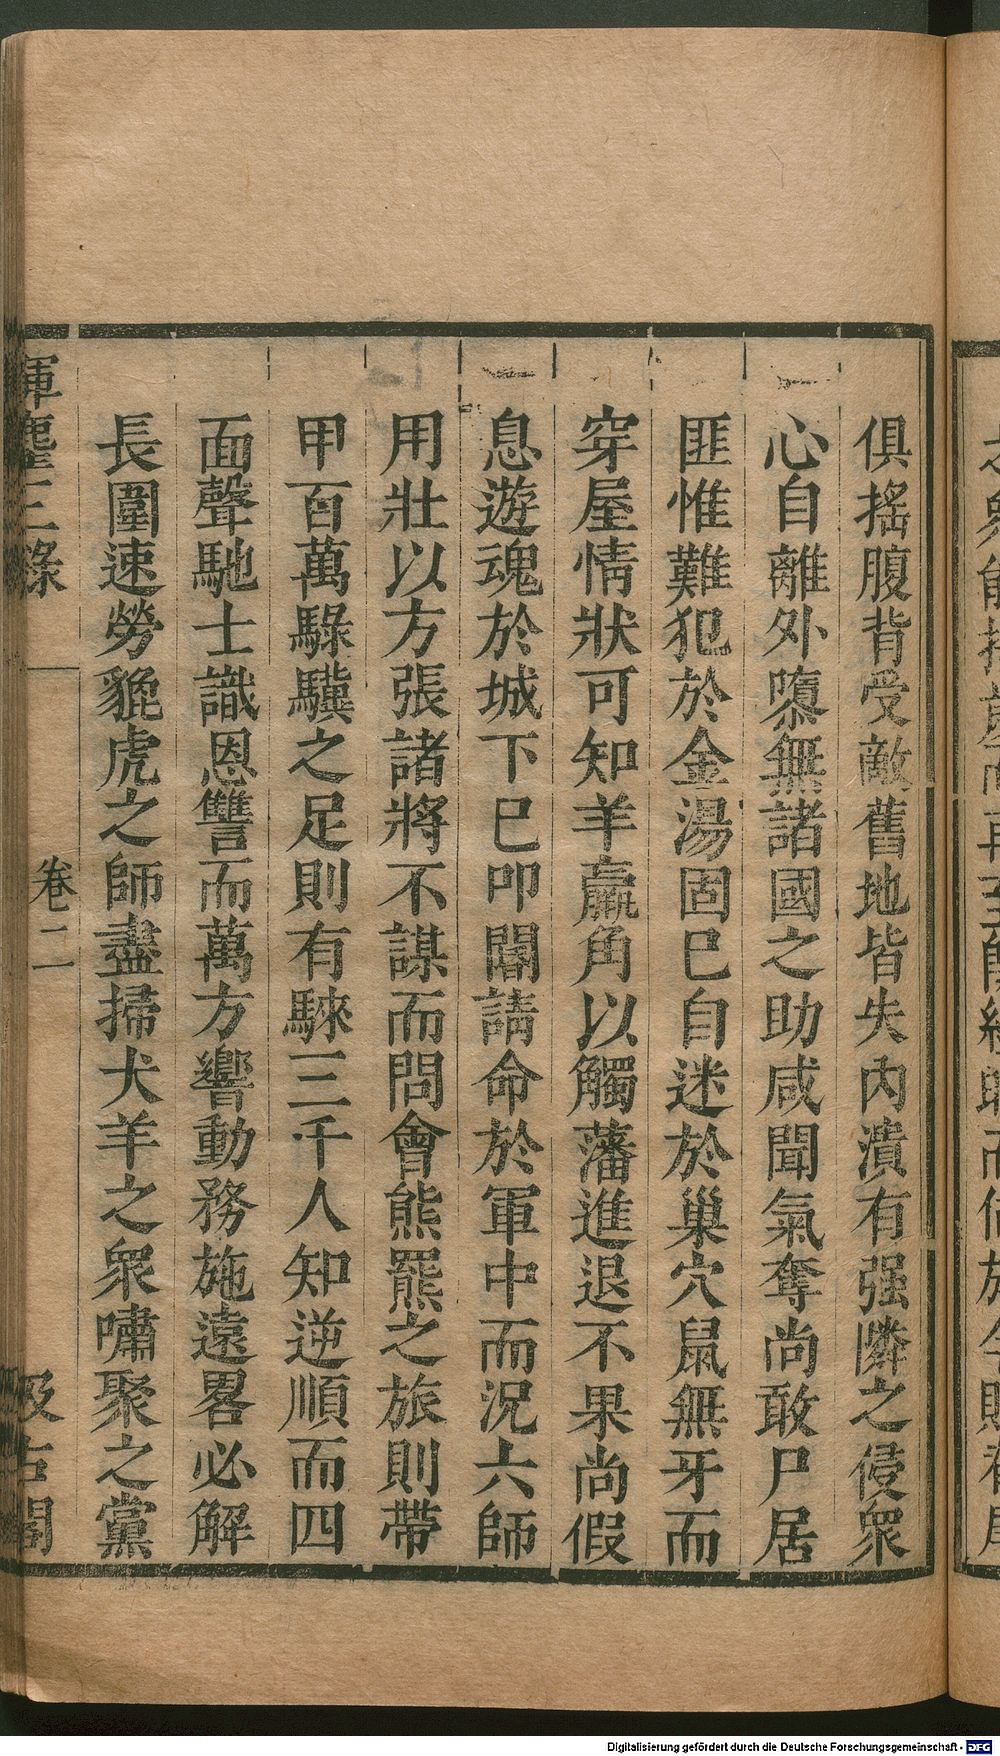 俱搖腹背受敵舊地皆失內潰有强隣之侵衆
心自離外隳無諸國之助咸聞氣奪尚敢尸居
匪惟難犯於金湯固已自迷於巢穴鼠無牙而
穿屋情狀可知羊羸角以觸藩進退不果尚假
息遊魂於城下已叩閽請命於軍中而況六師
用壯以方張諸將不謀而問會熊羆之旅則帶
甲百萬騄驥之足則有騋三千人知逆順而四
面聲馳士識恩讐而萬方響動務施遠畧必解
長圍速勞貔虎之師盡掃犬羊之衆嘯聚之黨
揮麈三錄
卷二
汲古閣
Digitalisierung gefördert durch die Deutsche Forschungsgemeinschaft - DFG